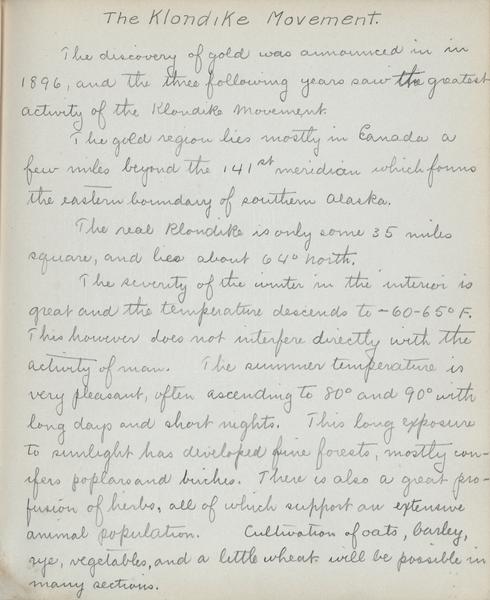 The Klondike Movement.
The discovery of gold was announced in in
1896, and the three following years saw the greatest
activity of the Klondike Movement.
The gold region lies mostly in Canada a
few miles beyond the 141st meridian which forms
the eastern boundary of southern Alaska.
The real Klondike is only some 35 miles
square, and lies about 64° north.
The severity of the winter in the interior is
great and the temperature descends to -60-65° F.
This however does not interfere directly with the
activity of man. The summer temperature is
very pleasant, often ascending to 80° and 90° with
long days and short nights. This long exposure
to sunlight has developed fine forests, mostly con-
ifers poplars and birches. There is also a great pro-
fusion of herbs, all of which support an extensive
animal population. Cultivation of oats, barley,
rye, vegetables, and a little wheat will be possible in
many sections.